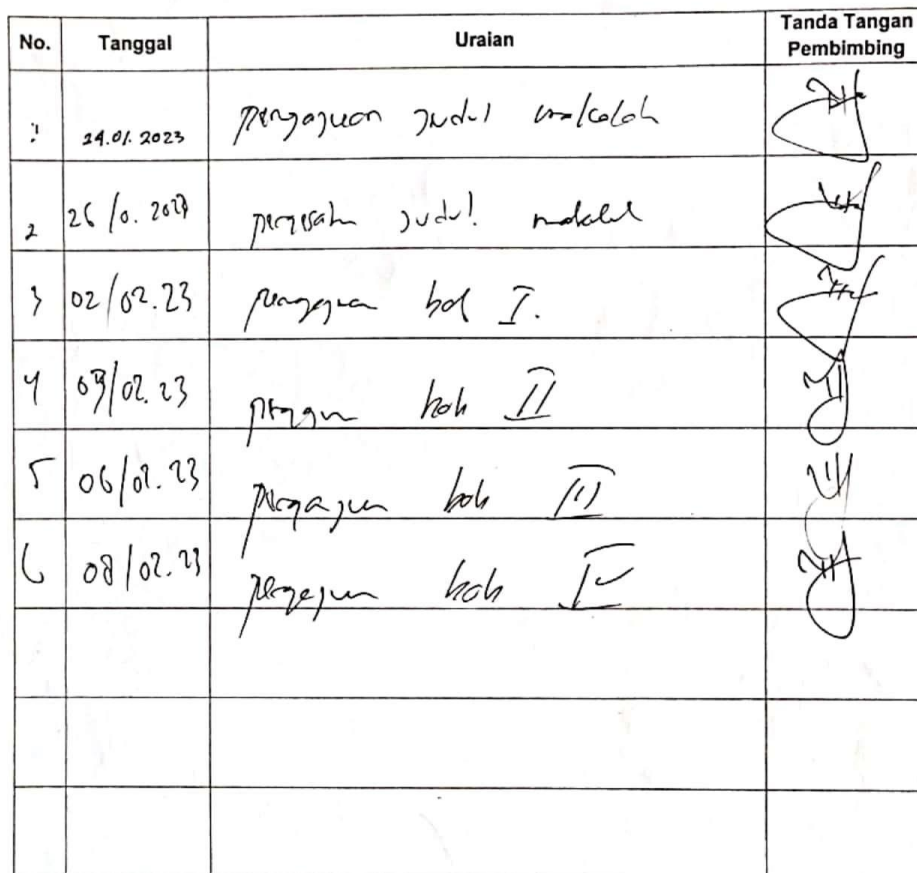 No. Tanggal Uraian Tanda Tangan Pembimbing
1 24.01.2023 pengajuan judul makalah
2 26/0. 2023 judul makalah
3 02/02.23 pengajuan bab I.
4 03/02.23 bab II
5 06/02.23 pengajuan bab III
6 08/02.23 pengajuan bab IV